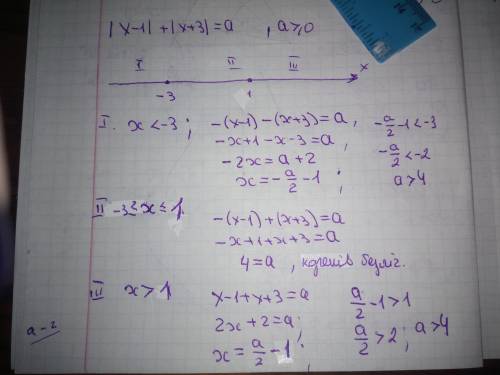 |x-1| + |x+3| = a , a ≥ 0
I II III
-3 1 x
I. x < -3 ; -(x-1) - (x+3) = a , -a/2 - 1 < -3
-x+1-x-3 = a , -a/2 < -2
-2x = a+2 a > 4
x = -a/2 - 1 ;
II -3 ≤ x ≤ 1. -(x-1) + (x+3) = a
-x+1+x+3 = a
4 = a , коренів безліч.
III x > 1 x-1+x+3 = a a/2 - 1 > 1
2x+2 = a ; a/2 > 2 ; a > 4
x = a/2 - 1 ;
a-2